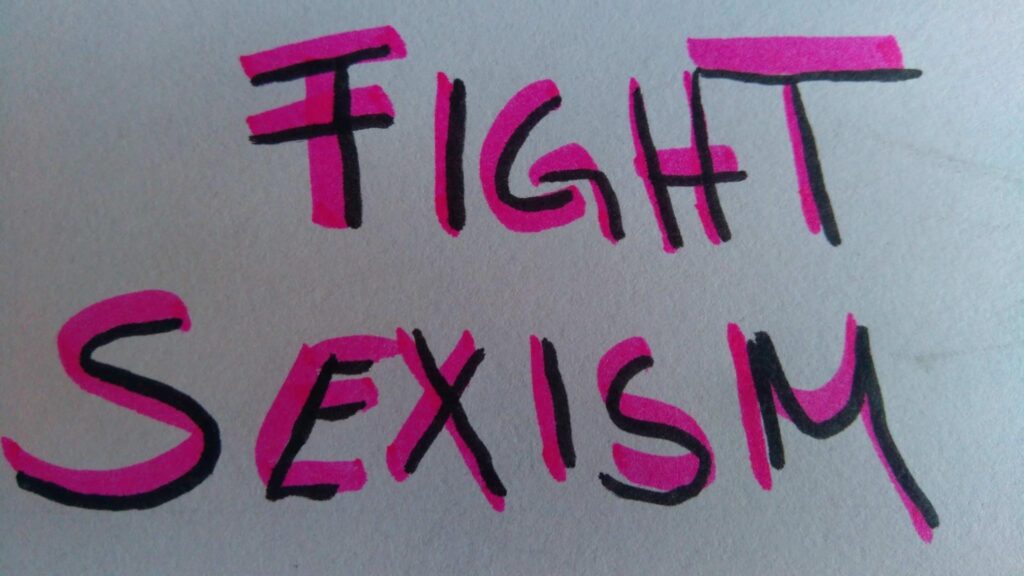 FIGHT
SEXISM